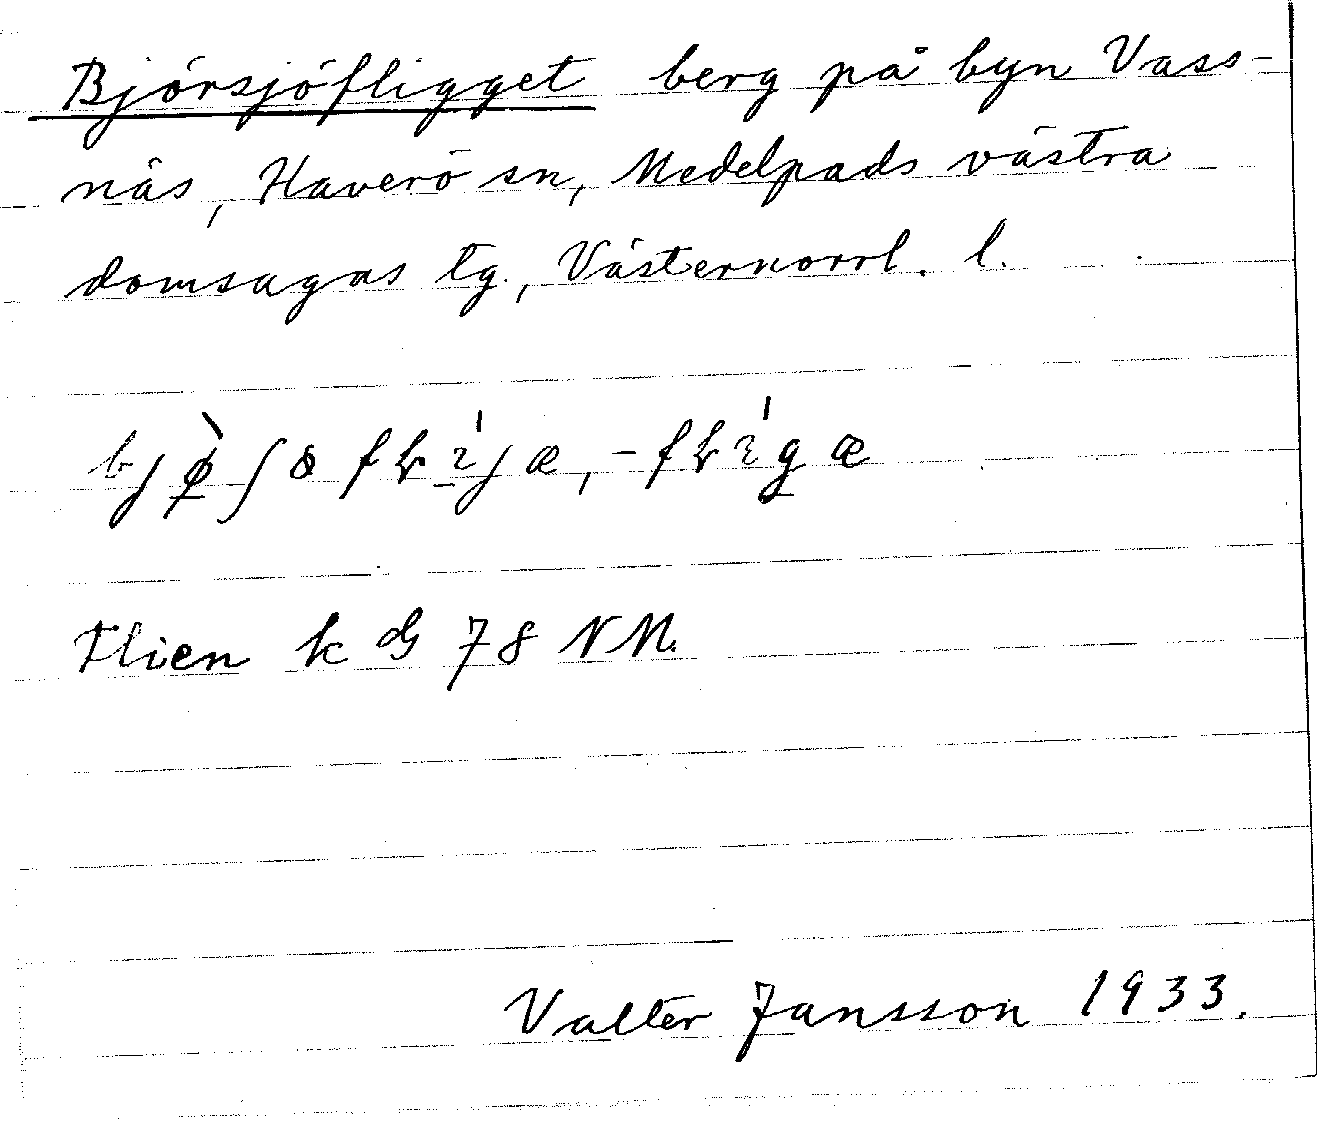 Björsjöfligget berg på byn Vass-
näs, Haverö sn, Medelpads västra
domsagas tg., Västernorrl. l.
Flien k dG 78 NM.
Valter Jansson 1933.